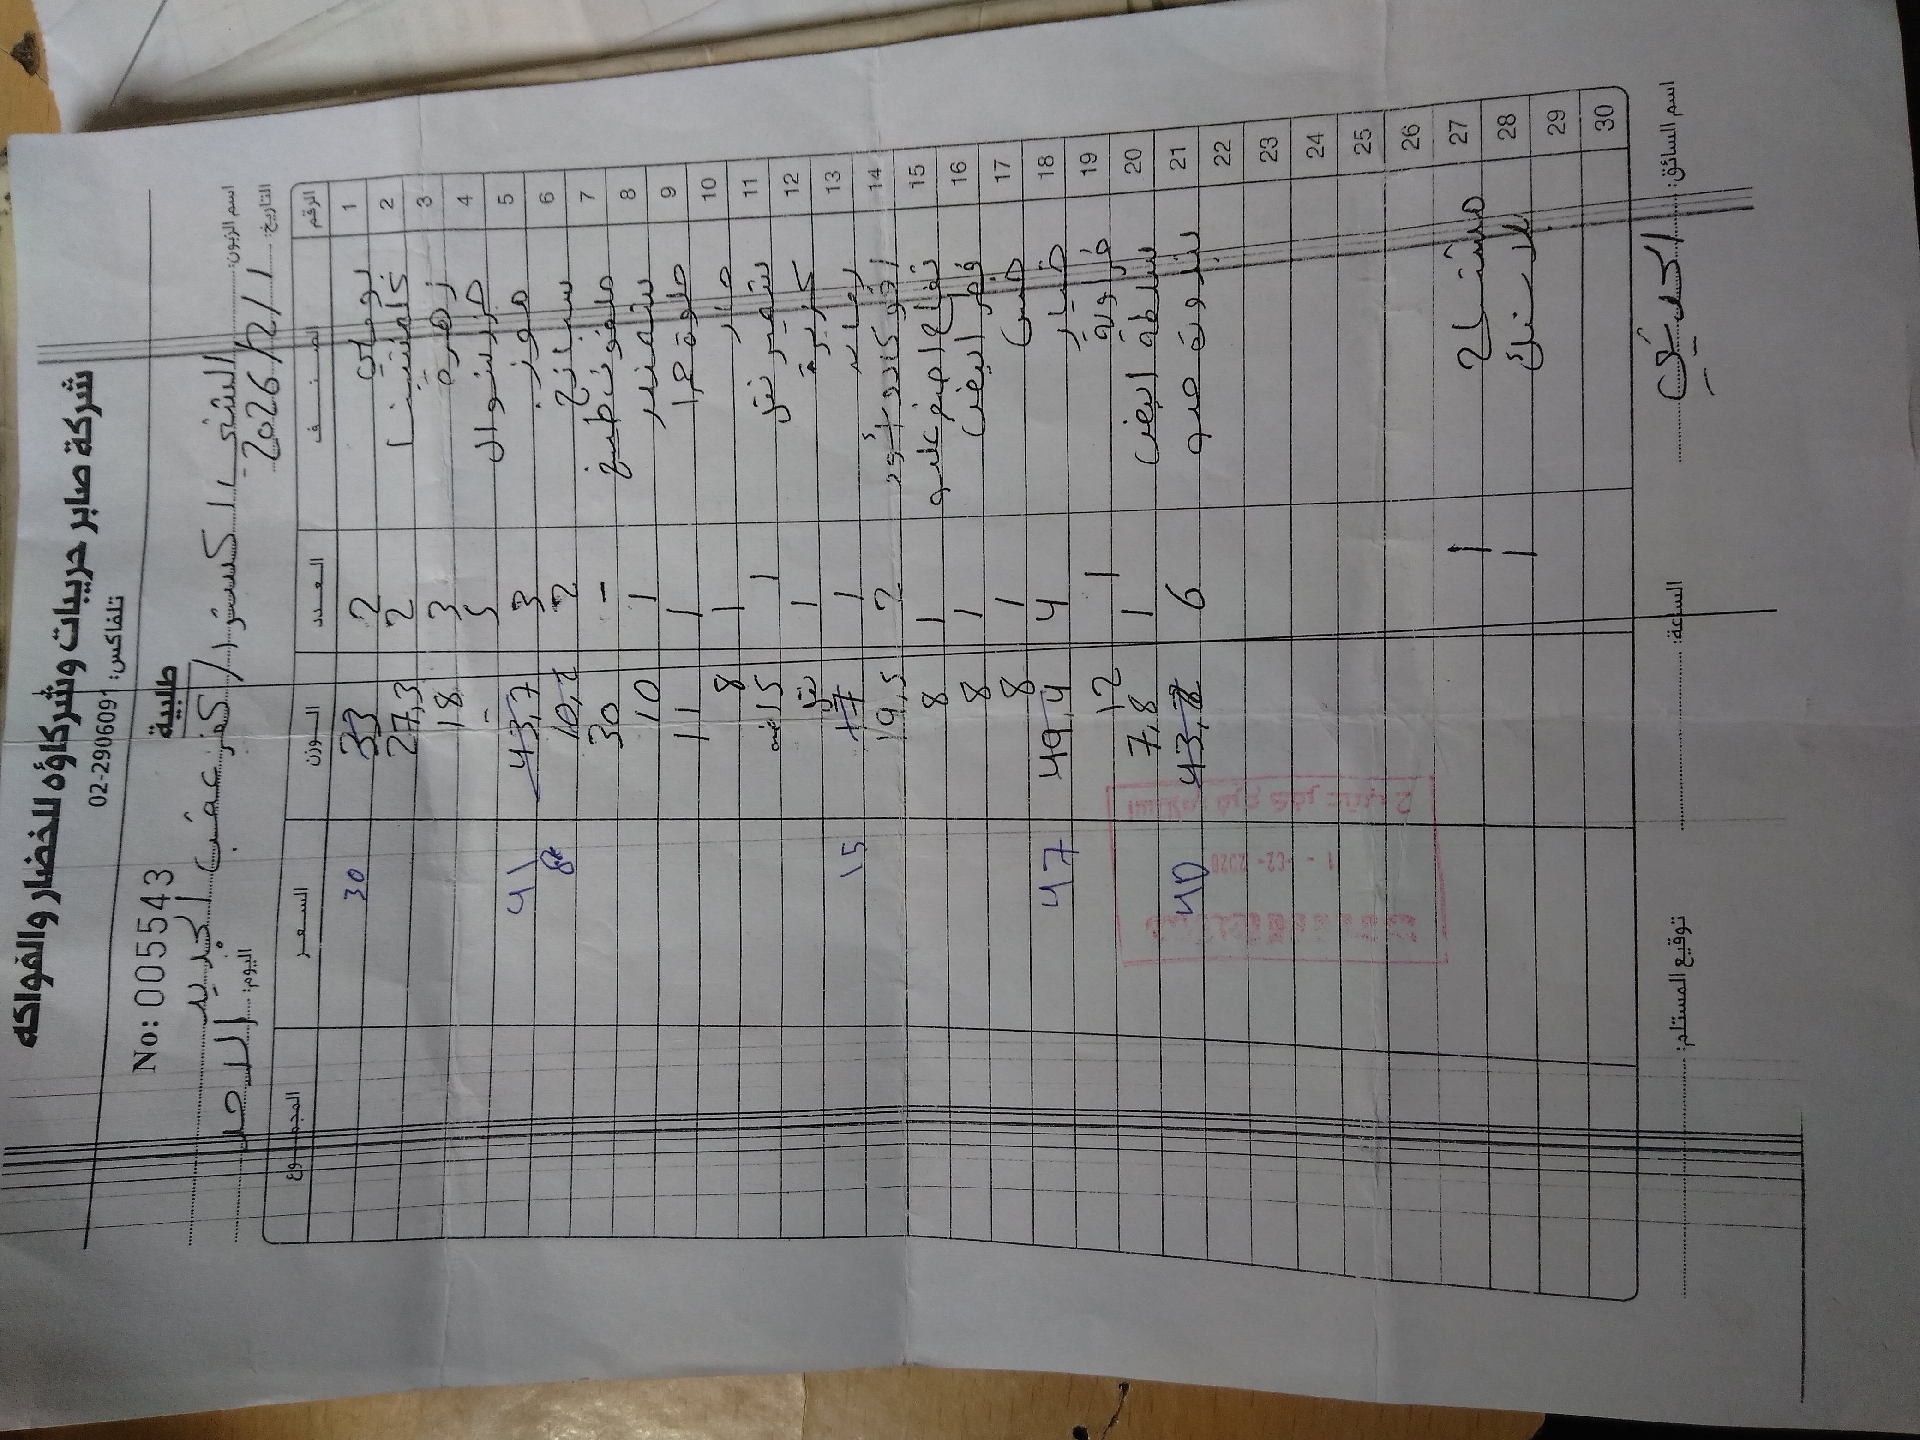 شركة صابر حريبات وشركاؤه للخضار والفواكه
تلفاكس: 02-2906091
طلبية
No: 005543
اسم الزبون: الشني اكسترا / كفر عقب الجديد
التاريخ: 2026/2/1 اليوم: الاحد
الرقم الصنف العدد الوزن السعر المجموع
1 بوملي 2 33 30
2 كلمنتينا 2 27,3
3 زهرة 3 18
4 5 -
5 موز 3 43,7 41
6 سبانخ 2 10,2 8
7 ملفوف طبيخ - 30
8 شمندر 1 10
9 حلوة حمرا 1 11
10 حار 1 8
11 1 15
12 كزبرة 1
13 1 17 15
14 افوكادو 2 19,5
15 تفاح اصفر 1 8
16 فطر ابيض 1 8
17 خس 1 8
18 خيار 4 49,4 47
19 فراولة 1 12
20 ابيض 1 7,8
21 بندورة 6 43,8 40
22
23
24
25
26
27 مشتاح 1
28 1
29
30
اسم السائق:
الساعة:
توقيع المستلم: